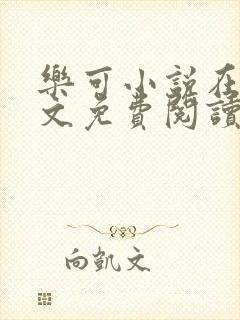 樂可小說在
文免費閱讀
向凱文